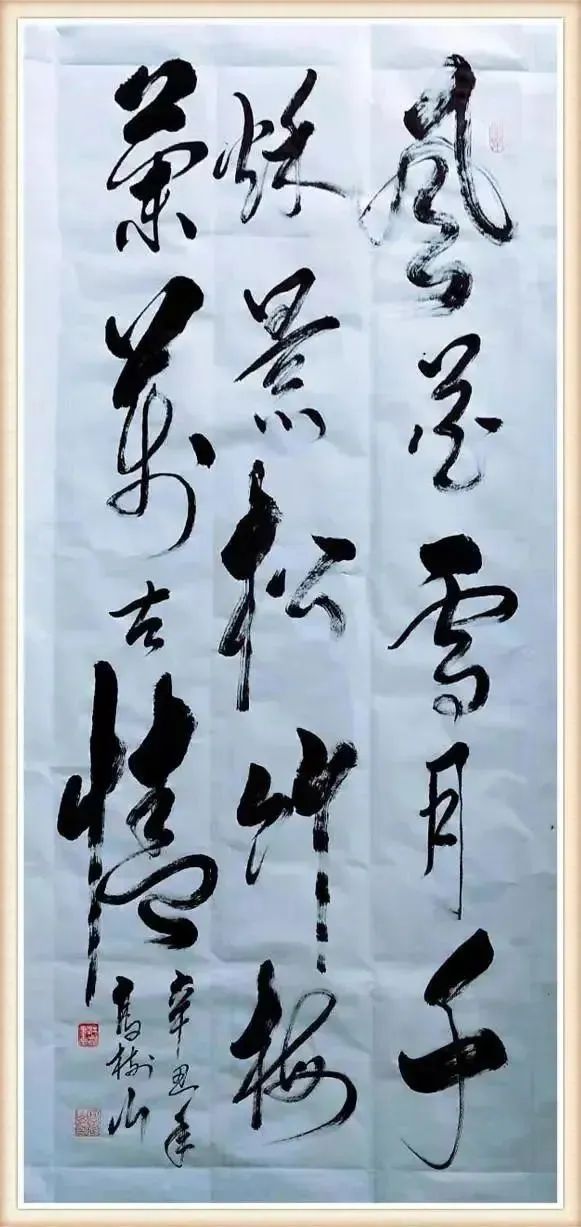 風花雪月千
秌景松竹梅
蘭萬古情
辛丑年
高樹山